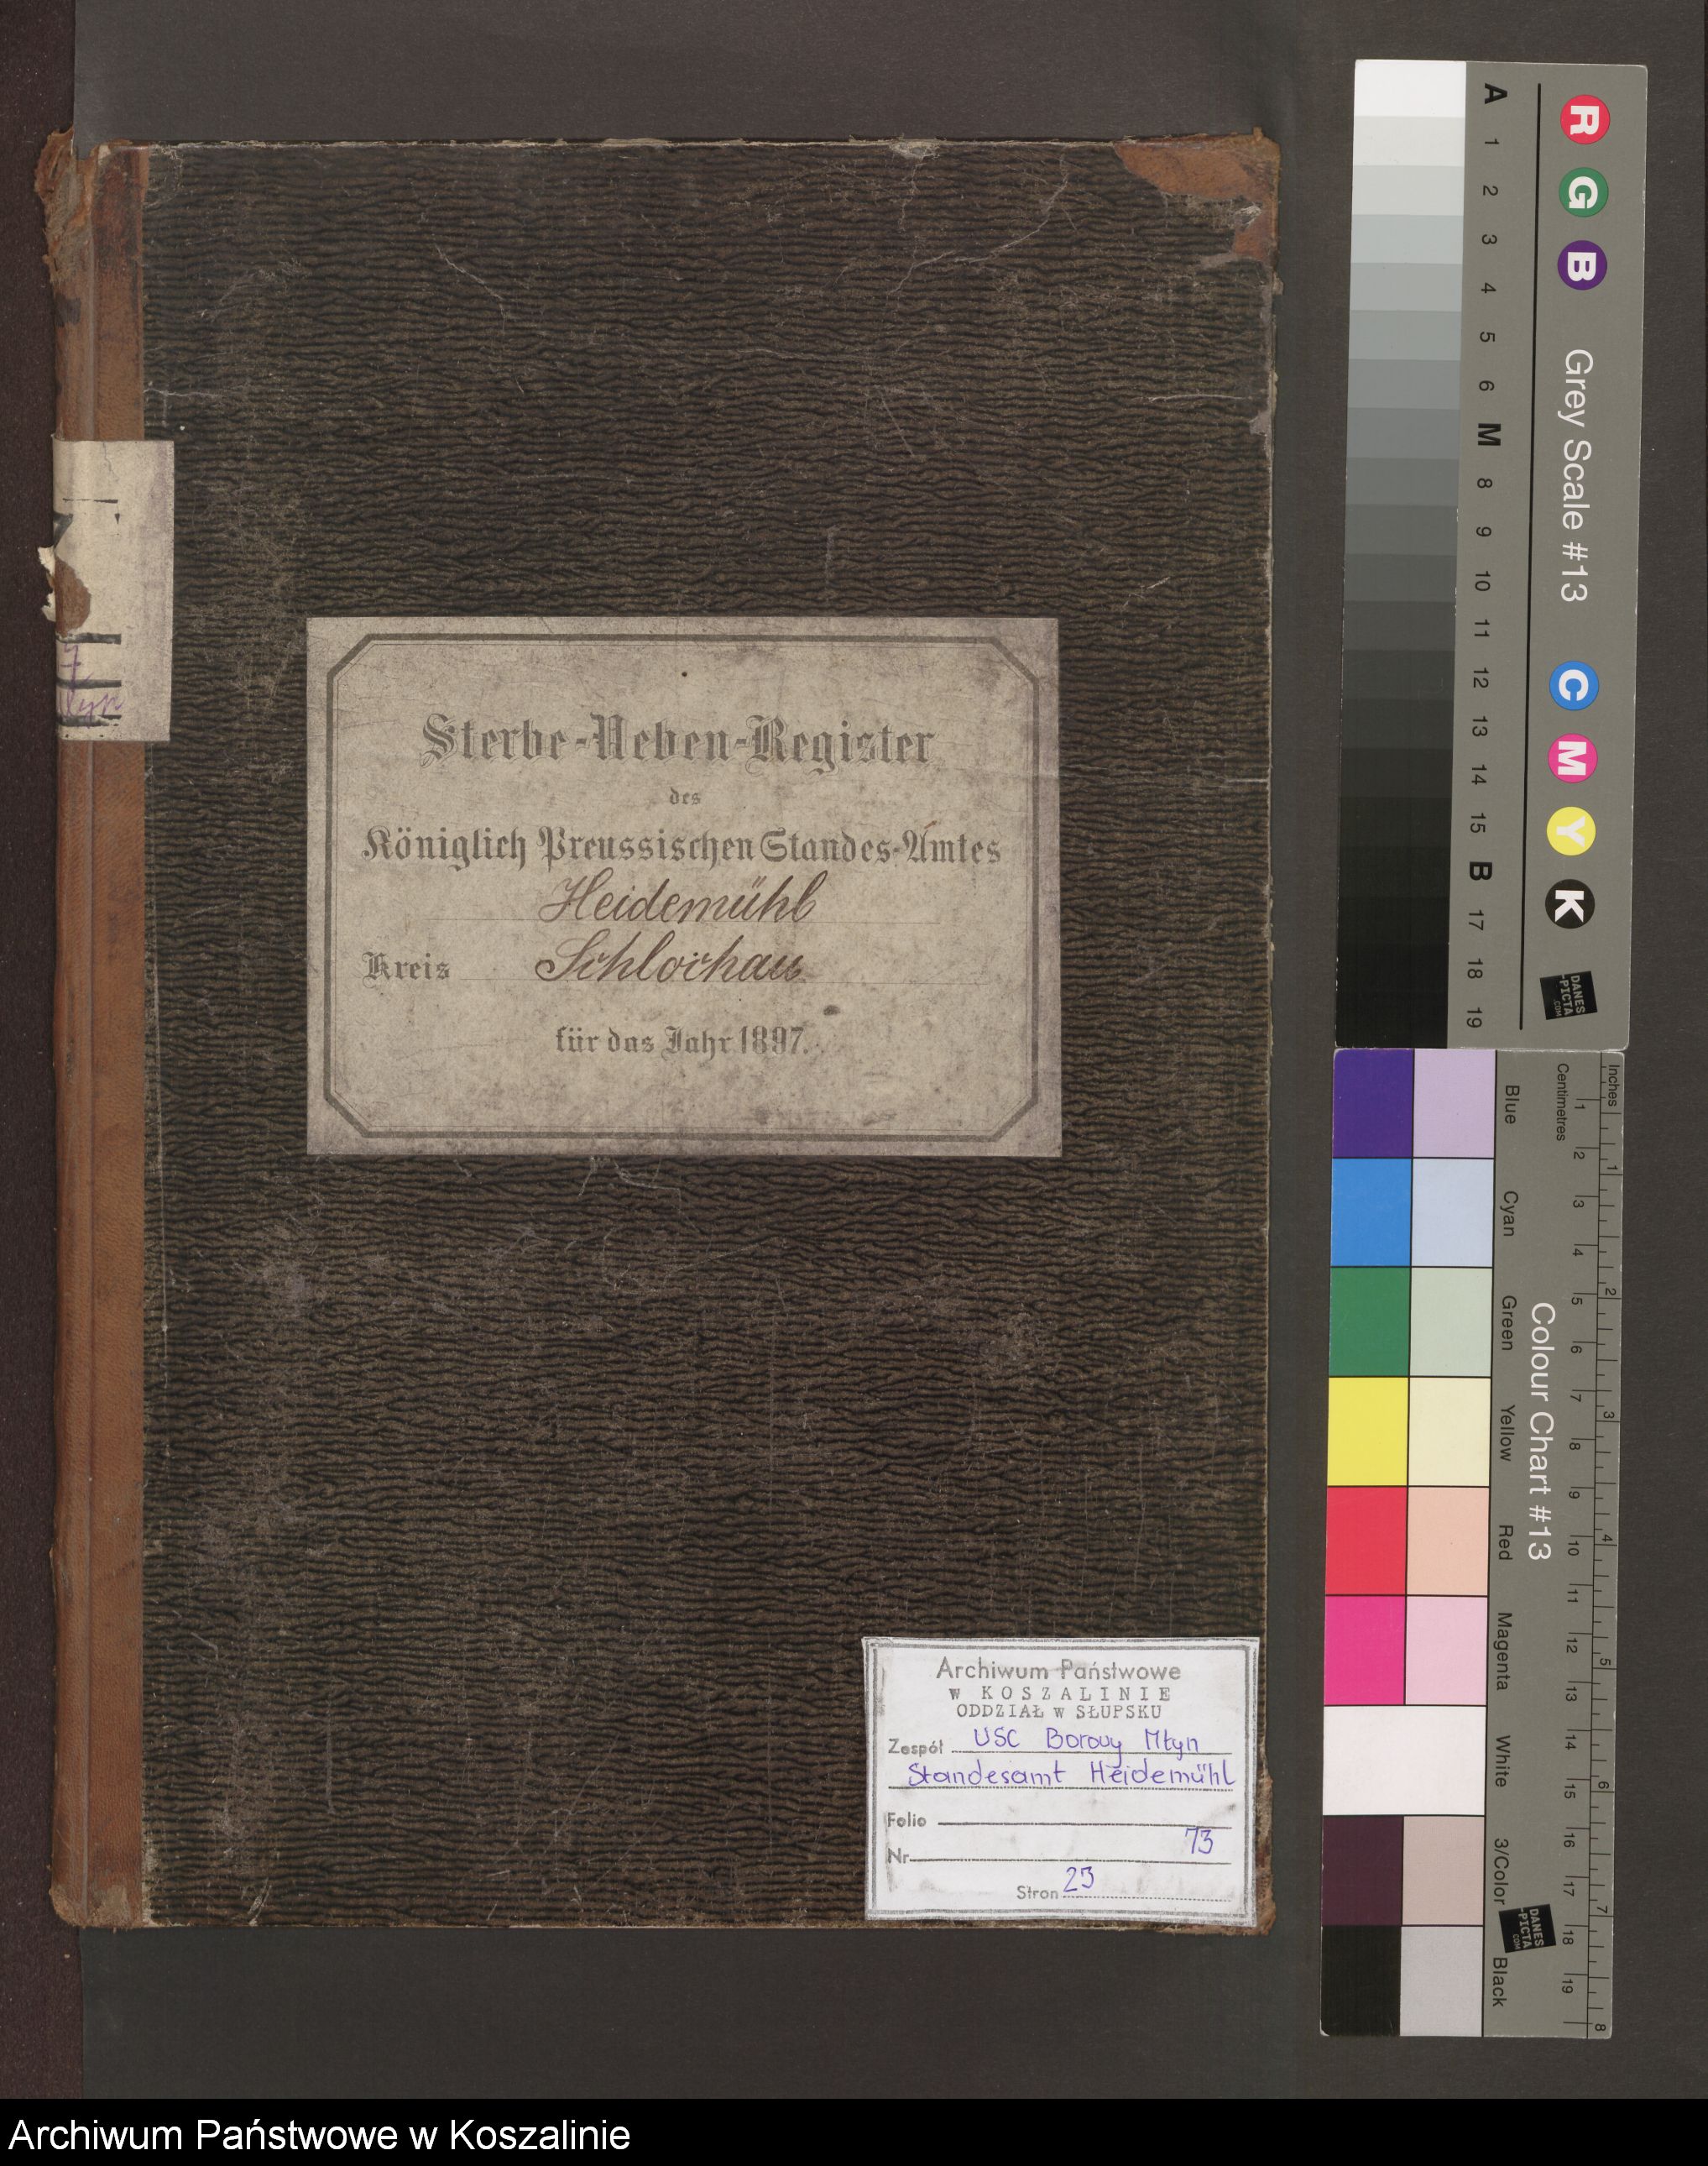 Sterbe-Neben-Register
des
Königlich Preussischen Standes-Amtes
Heidemühl
Kreis Schlochau
für das Jahr 1897.
Archiwum Państwowe
w KOSZALINIE
ODDZIAŁ w SŁUPSKU
Zespół USC Borowy Młyn
Standesamt Heidemühl
Folio
Nr 73
Stron 23
A 1 2 3 4 5 6 M 8 9 10 11 12 13 14 15 B 17 18 19
R G B Grey Scale #13 C M Y K
DANES
-PICTA
.COM
Blue Cyan Green Yellow Red Magenta White 3/Color Black
Colour Chart #13
DANES
-PICTA
.COM
Centimetres 1 2 3 4 5 6 7 8 9 10 11 12 13 14 15 16 17 18 19
Inches 1 2 3 4 5 6 7 8
Archiwum Państwowe w Koszalinie